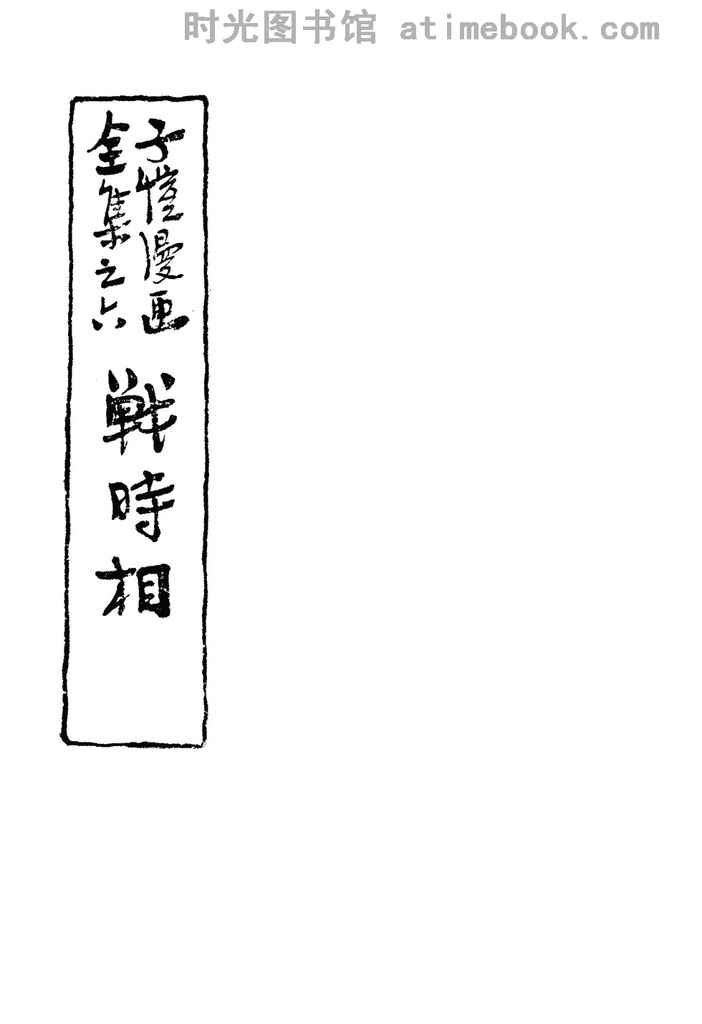 时光图书馆 atimebook.com
子愷漫画
全集之六
戰時相